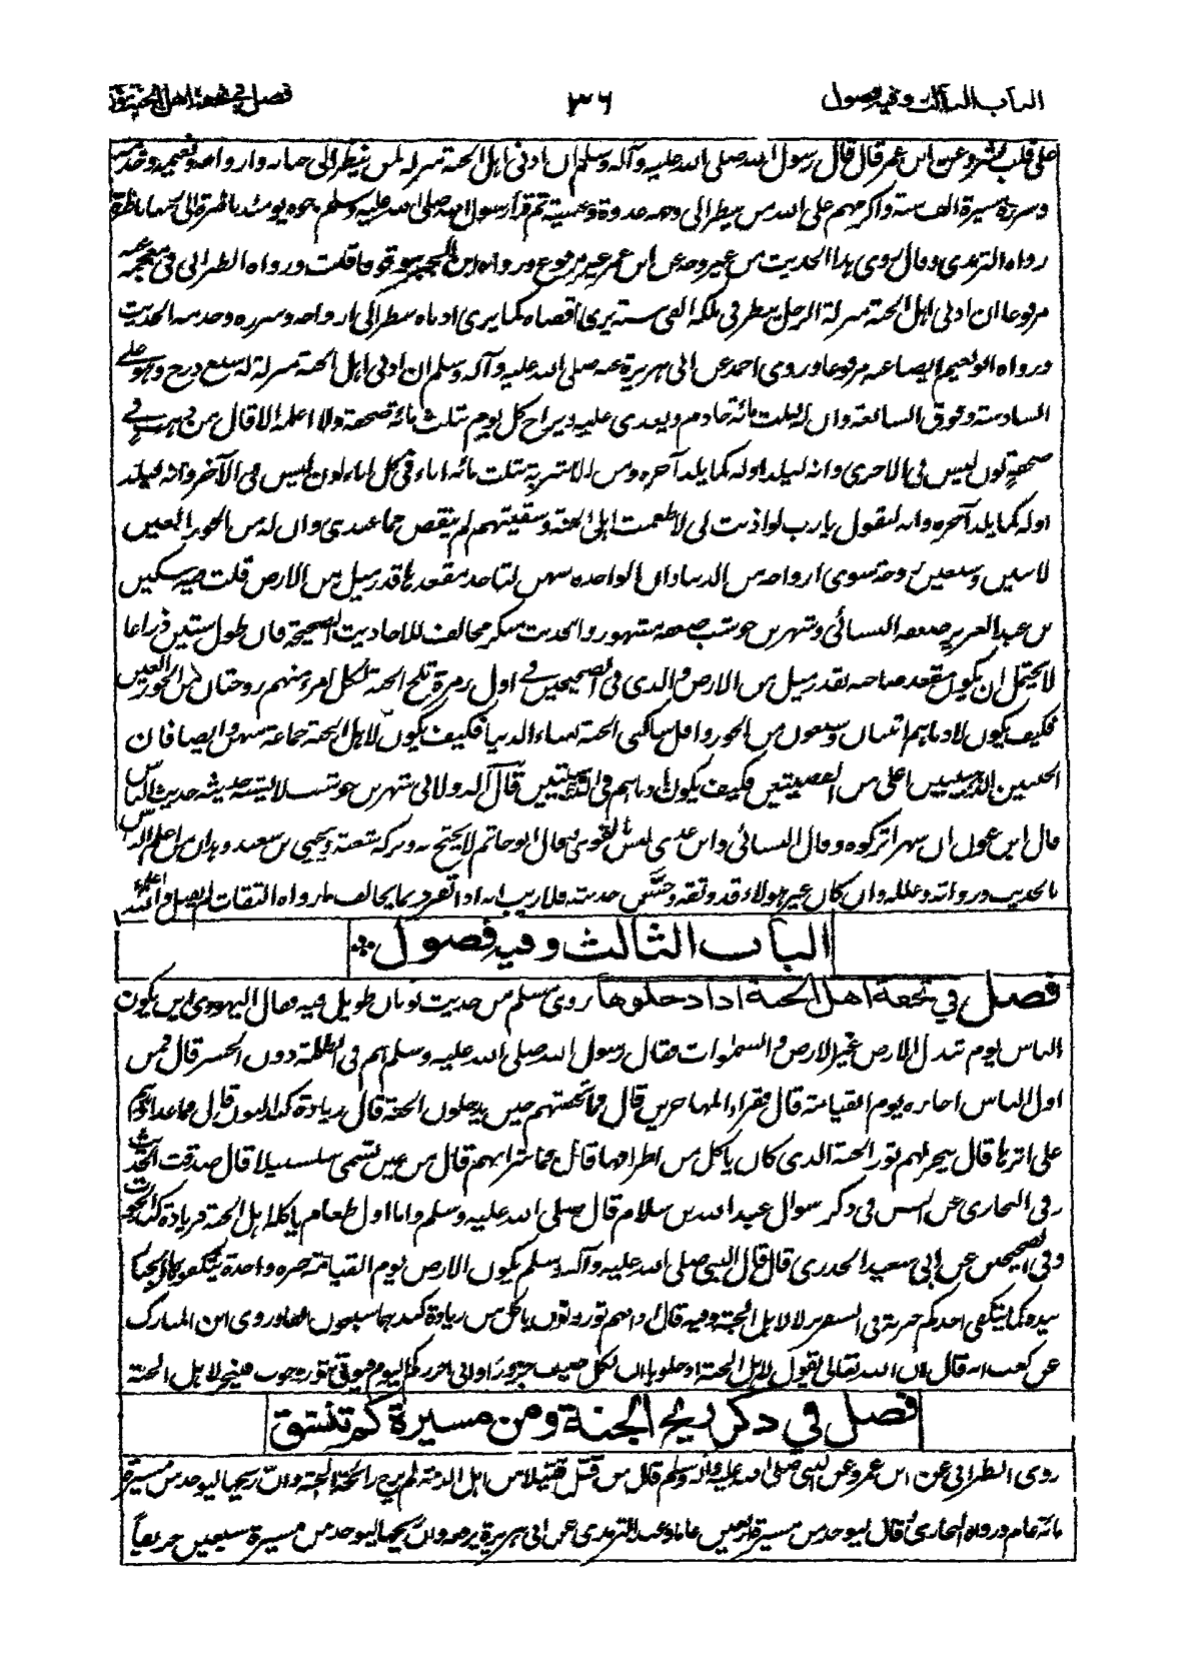 الباب الثالث وفيه فصول
٣٦
فصل في تحفة اهل الجنة
على قلب بشر وعن ابن عمر قال قال رسول الله صلى الله عليه وآله وسلم ان ادنى اهل الجنة منزلة لمن ينظر الى جنانه وازواجه ونعيمه وخدمه
وسرره مسيرة الف سنة واكرمهم على الله من ينظر الى وجهه غدوة وعشية ثم قرأ رسول الله صلى الله عليه وسلم وجوه يومئذ ناظرة الى ربها ناظرة
رواه الترمذي وقال روى هذا الحديث من غير وجه عن ابن عمر غير مرفوع ورواه ابن ابجر موقوفا قلت ورواه الطبراني في معجمه
مرفوعا ان ادنى اهل الجنة منزلة الرجل ينظر في ملكه الفي سنة يرى اقصاه كما يرى ادناه ينظر الى ازواجه وسرره وخدمه الحديث
ورواه ابو نعيم ايضا عنه مرفوعا وروى احمد عن ابي هريرة عنه صلى الله عليه وآله وسلم ان ادنى اهل الجنة منزلة له سبع درج وهو على
السادسة وفوقه السابعة وان له لثلث مائة خادم ويغدى عليه ويراح كل يوم ثلث مائة صحفة ولا اعلمه الا قال من ذهب في
صحفة لون ليس في الاخرى وانه ليلذ اوله كما يلذ آخره ومن الاشربة ثلث مائة اناء في كل اناء لون ليس في الآخر وانه ليلذ
اوله كما يلذ آخره وانه ليقول يا رب لو اذنت لي لاطعمت اهل الجنة وسقيتهم لم ينقص مما عندي وان له من الحور العين
لاثنين وسبعين زوجة سوى ازواجه من الدنيا وان الواحدة منهن لتاخذ مقعدها قدر ميل من الارض قلت فيه سكين
بن عبد العزيز ضعفه النسائي وشهر بن حوشب ضعفه مشهور والحديث منكر مخالف للاحاديث الصحيحة فان طول ستين ذراعا
لا يحتمل ان يكون مقعد صاحبه بقدر ميل من الارض والذي في الصحيحين في اول زمرة تلج الجنة لكل امرء منهم زوجتان من الحور العين
فكيف يكون لادناهم اثنتان وسبعون من الحور واقل ساكني الجنة نساء الدنيا فكيف يكون لاهل الجنة جماعة منهن وايضا فان
الجنتين الذهبيتين اعلى من الفضيتين فكيف يكون ادناهم في الذهبيتين قال الدولابي شهر بن حوشب لا يشبه حديثه حديث الناس
قال ابن عون ان شهرا تركوه وقال النسائي وابن عدي ليس بالقوي وقال ابو حاتم لا يحتج به وتركه شعبة ويحيى بن سعيد وهذان من اعلم الناس
بالحديث ورواته وعلله وان كان غير هؤلاء قد وثقه وحسن حديثه فلا ريب انه اذا تفرد بما يخالف ما رواه الثقات لم يقبل والله اعلم
الباب الثالث وفيه فصول
فصل في تحفة اهل الجنة اذا دخلوها روى مسلم من حديث ثوبان طويل فيه فقال اليهودي اين يكون
الناس يوم تبدل الارض غير الارض والسموات فقال رسول الله صلى الله عليه وسلم هم في الظلمة دون الجسر قال فمن
اول الناس اجازة يوم القيامة قال فقراء المهاجرين قال فما تحفتهم حين يدخلون الجنة قال زيادة كبد النون قال فما غداؤهم
على اثرها قال ينحر لهم ثور الجنة الذي كان يأكل من اطرافها قال فما شرابهم قال من عين تسمى سلسبيلا قال صدقت الحديث
وفي البخاري عن انس في ذكر سوال عبد الله بن سلام قال صلى الله عليه وسلم واما اول طعام ياكله اهل الجنة فزيادة كبد الحوت
وفي الصحيحين عن ابي سعيد الخدري قال قال النبي صلى الله عليه وآله وسلم يكون الارض يوم القيامة خبزة واحدة يتكفوها الجبار
بيده كما يتكفى احدكم خبزته في السفر نزلا لاهل الجنة وفيه قال ادامهم ثور ونون يأكل من زيادة كبدهما سبعون الفا وروى ابن المبارك
عن كعب انه قال ان الله تعالى يقول لاهل الجنة ادخلوها ان لكل ضيف جزورا واني اجزركم اليوم فيوتى بثور وحوت فينحر لاهل الجنة
فصل في ذكر ريح الجنة ومن مسيرة كم تنشق
روى الطبراني عن ابن عمرو عن النبي صلى الله عليه وآله وسلم قال من قتل قتيلا من اهل الذمة لم يرح رائحة الجنة وان ريحها ليوجد من مسيرة
مائة عام ورواه البخاري قال ليوجد من مسيرة اربعين عاما وعند الترمذي عن ابي هريرة يرفعه وان ريحها ليوجد من مسيرة سبعين خريفا